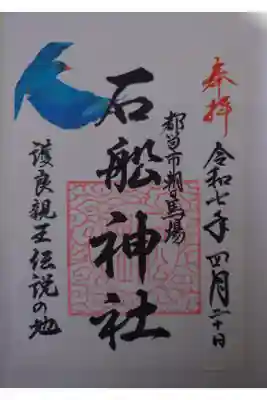 奉拝
令和七年四月二十日
都留市朝日馬場
石舩神社
護良親王伝説の地